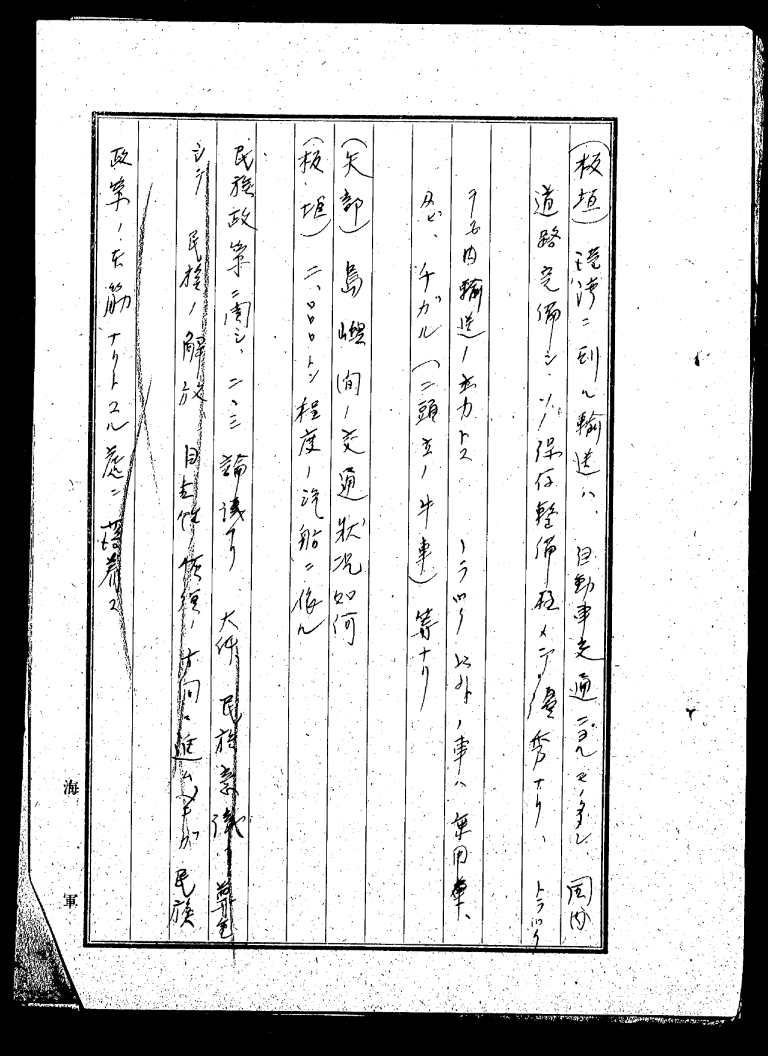 (板垣) 港湾ニ到ル輸送ハ、自動車交通ニヨルモノ多シ、国内
道路完備シ、ソノ保存整備極メテ優秀ナリ、トラック
ヲ国内輸送ノ主力トス トラック以外ノ車ハ乗用車、
及ビ、チガル(二頭立ノ牛車)等ナリ
(矢部) 島嶼間ノ交通状況如何
(板垣) 二、〇〇〇トン程度ノ汽船ニ依ル
民族政策ニ関シ、二、三論議アリ 大体 民族意識ノ尊重
シ 民族ノ解放 自主性ノ恢復ノ方向ニ進ムベキガ民族
政策ノ本筋ナリトスル意ニ
海軍